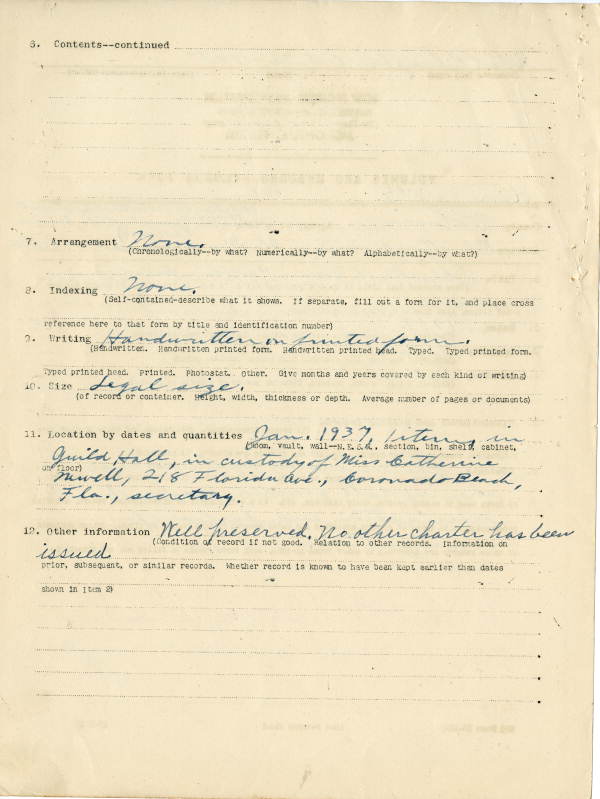 6. Contents--continued
7. Arrangement None.
(Chronologically--by what? Numerically--by what? Alphabetically--by what?)
8. Indexing None.
(Self-contained-describe what it shows. If separate, fill out a form for it, and place cross
reference here to that form by title and identification number)
9. Writing Handwritten on printed form.
(Handwritten. Handwritten printed form. Handwritten printed head. Typed. Typed printed form.
Typed printed head. Printed. Photostat. Other. Give months and years covered by each kind of writing)
10. Size Legal size.
(of record or container. Height, width, thickness or depth. Average number of pages or documents)
11. Location by dates and quantities Jan. 1937 1 item, in
(Room, vault, wall--N.E.S.W. section, bin, shelf, cabinet,
Guild Hall, in custody of Miss Catherine
or floor)
Newell, 218 Florida Ave., Coronado Beach,
Fla., secretary.
12. Other information Well preserved. No other charter has been
(Condition of record if not good. Relation to other records. Information on
issued
prior, subsequent, or similar records. Whether record is known to have been kept earlier than dates
shown in Item 2)